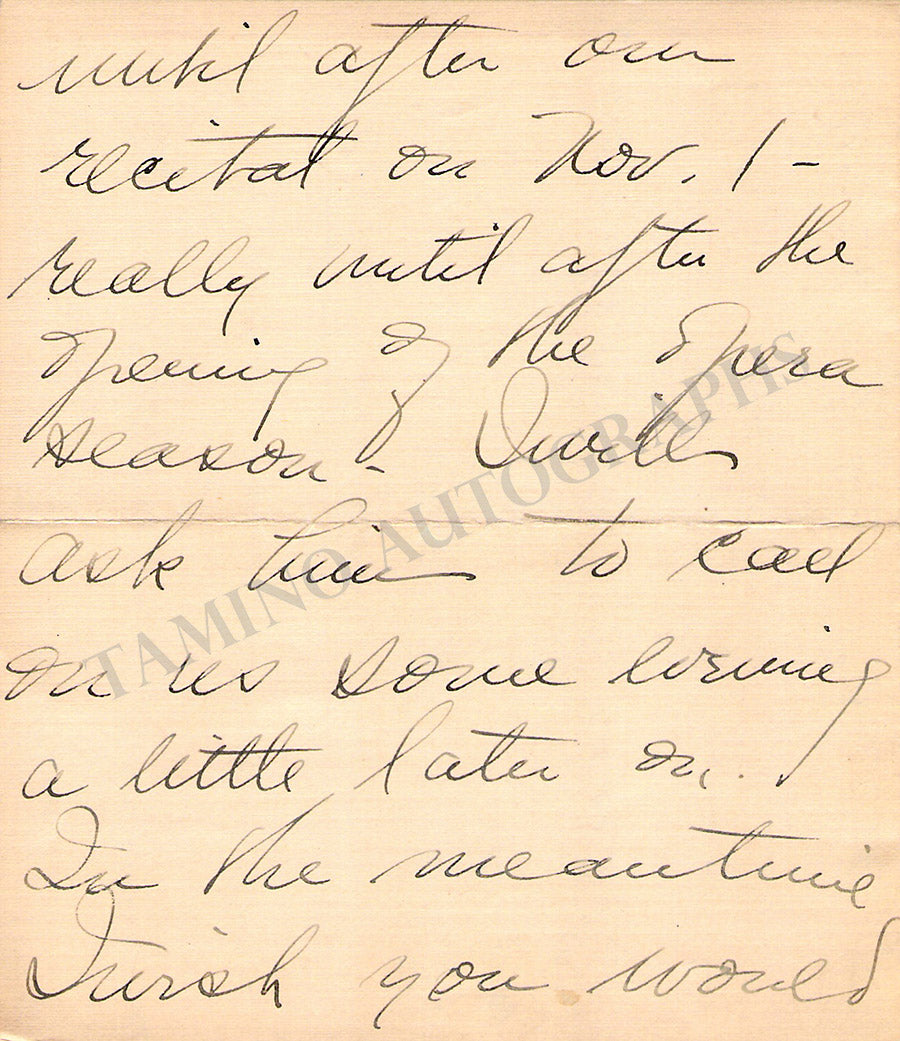 until after our
recital on Nov. 1 -
really until after the
opening of the opera
season - I will
ask him to call
on us some evening
a little later on.
In the meantime
I wish you would
TAMINO AUTOGRAPHS